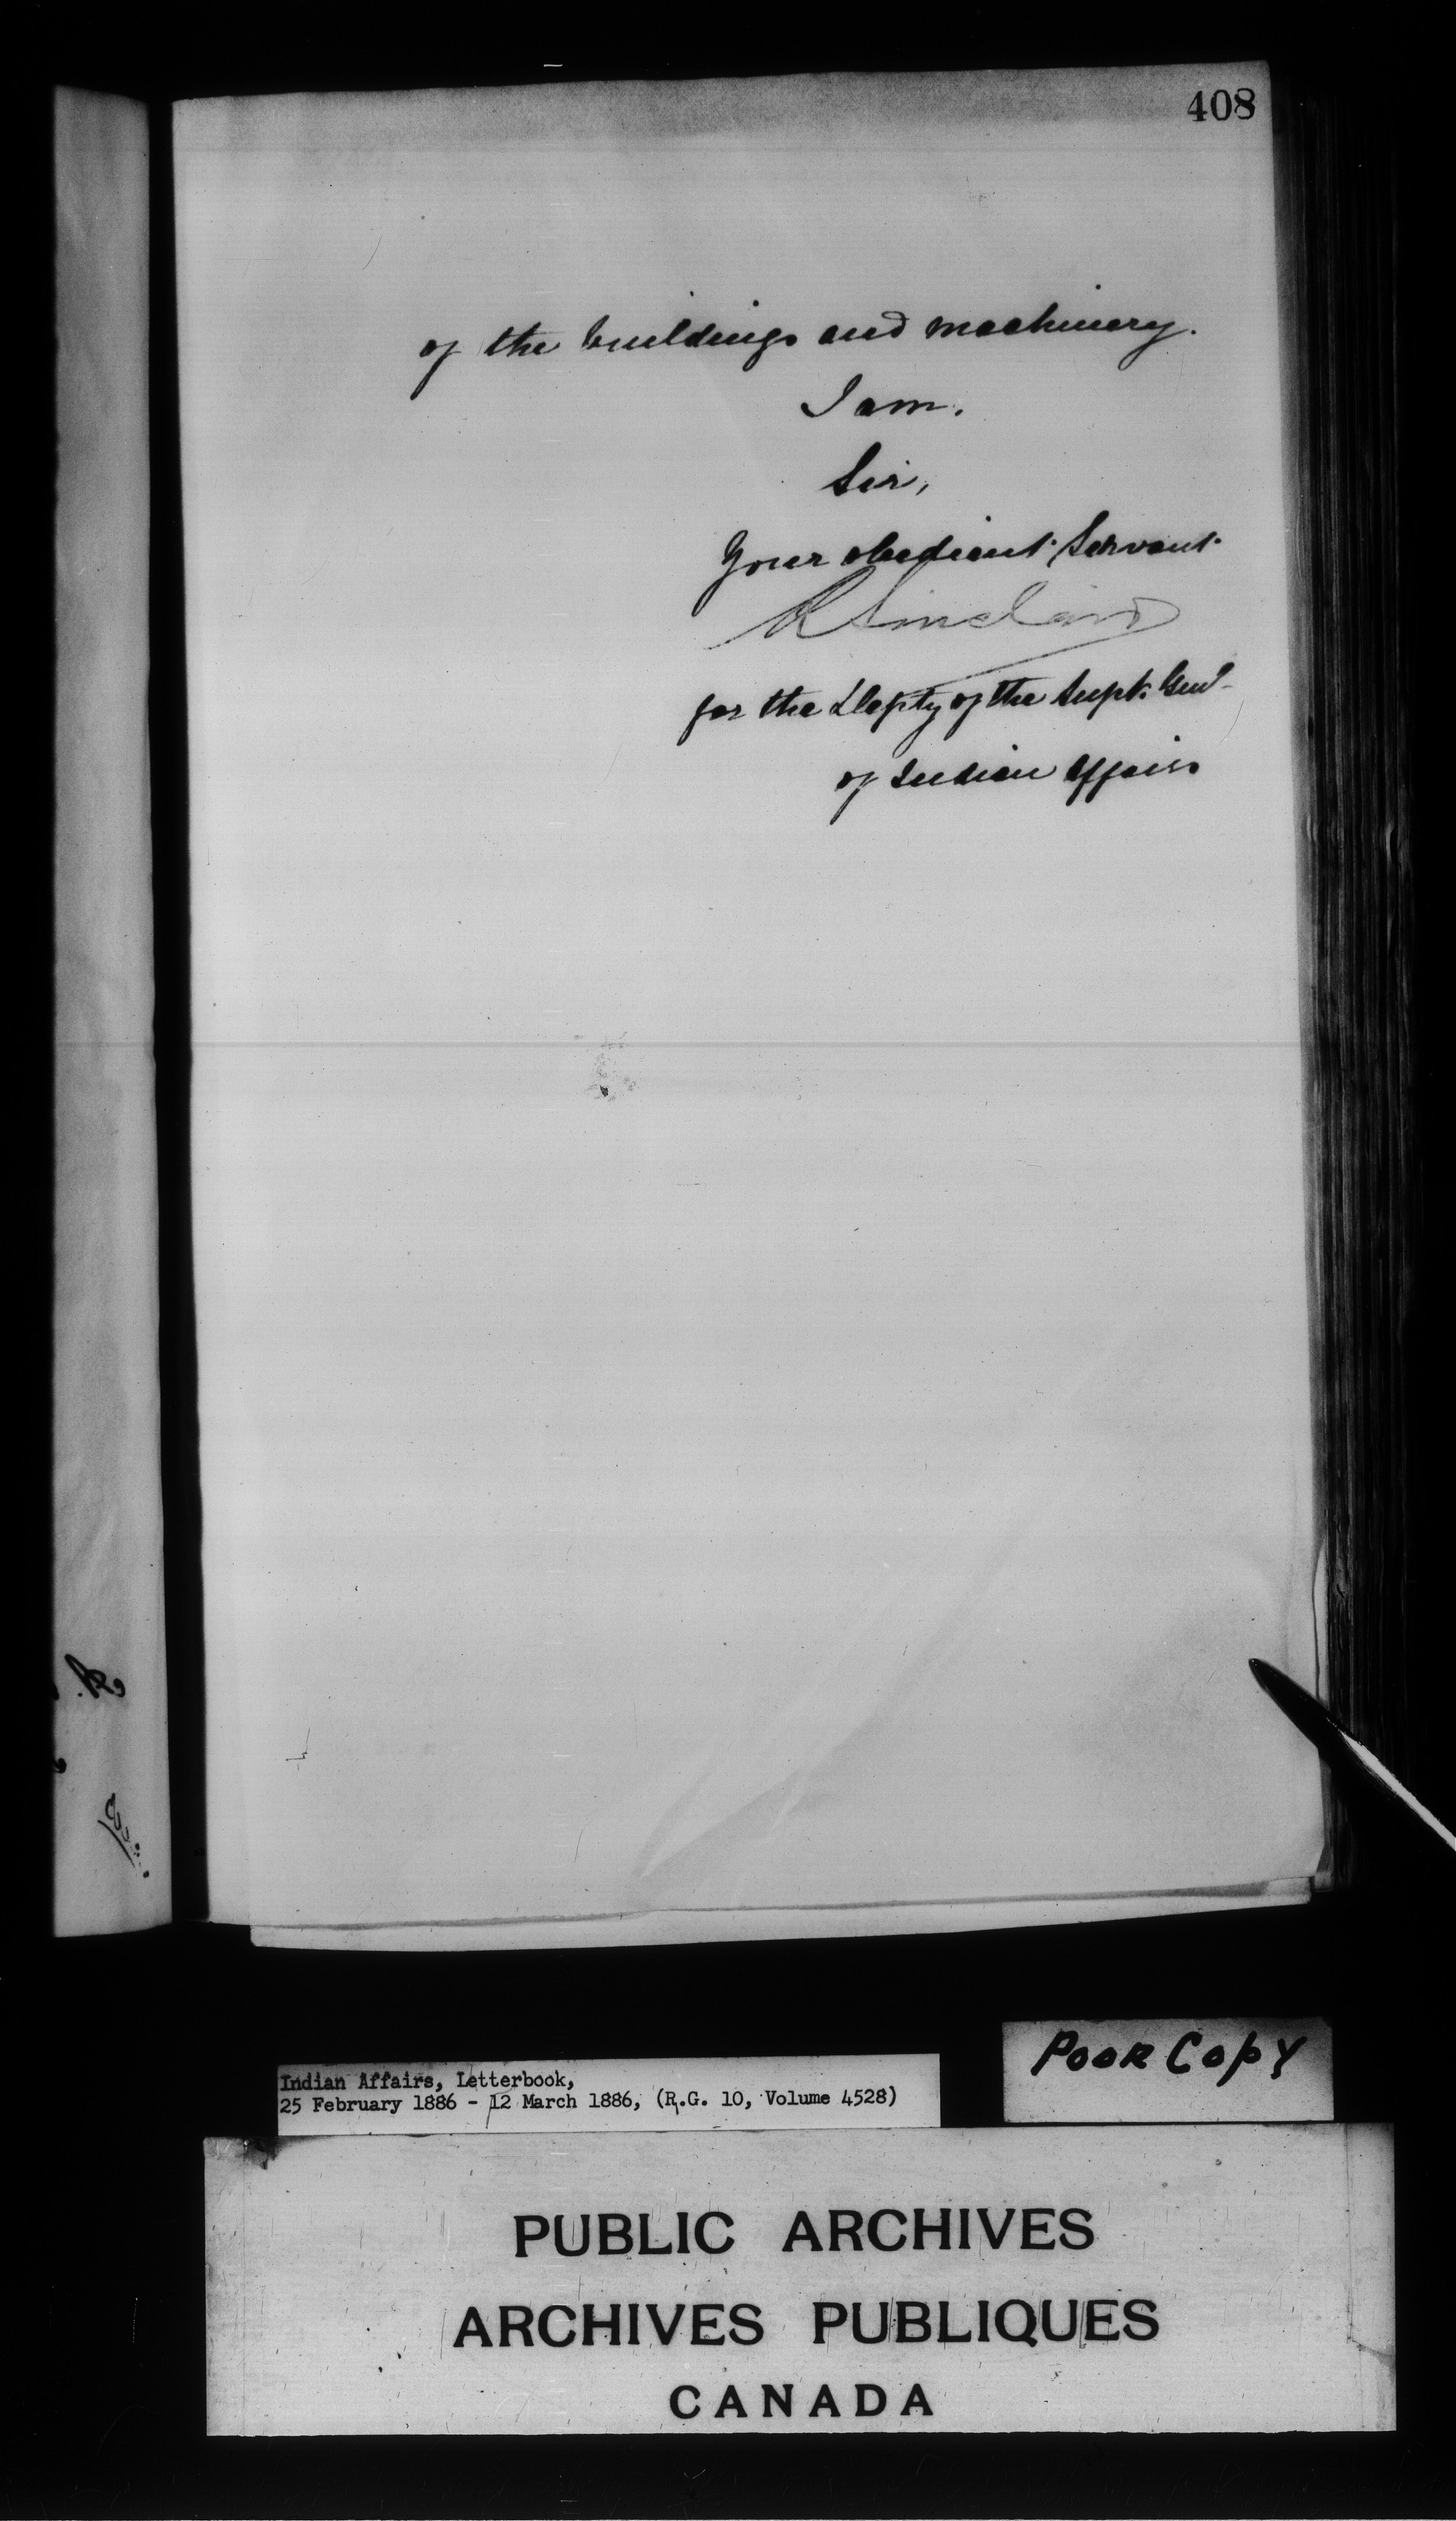 408
of the buildings and machinery.
I am.
Sir,
Your obedient Servant
R Sinclair
for the Depty of the Supt. Genl
of Indian Affairs
Poor Copy
Indian Affairs, Letterbook,
25 February 1886 - 12 March 1886, (R.G. 10, Volume 4528)
PUBLIC ARCHIVES
ARCHIVES PUBLIQUES
CANADA